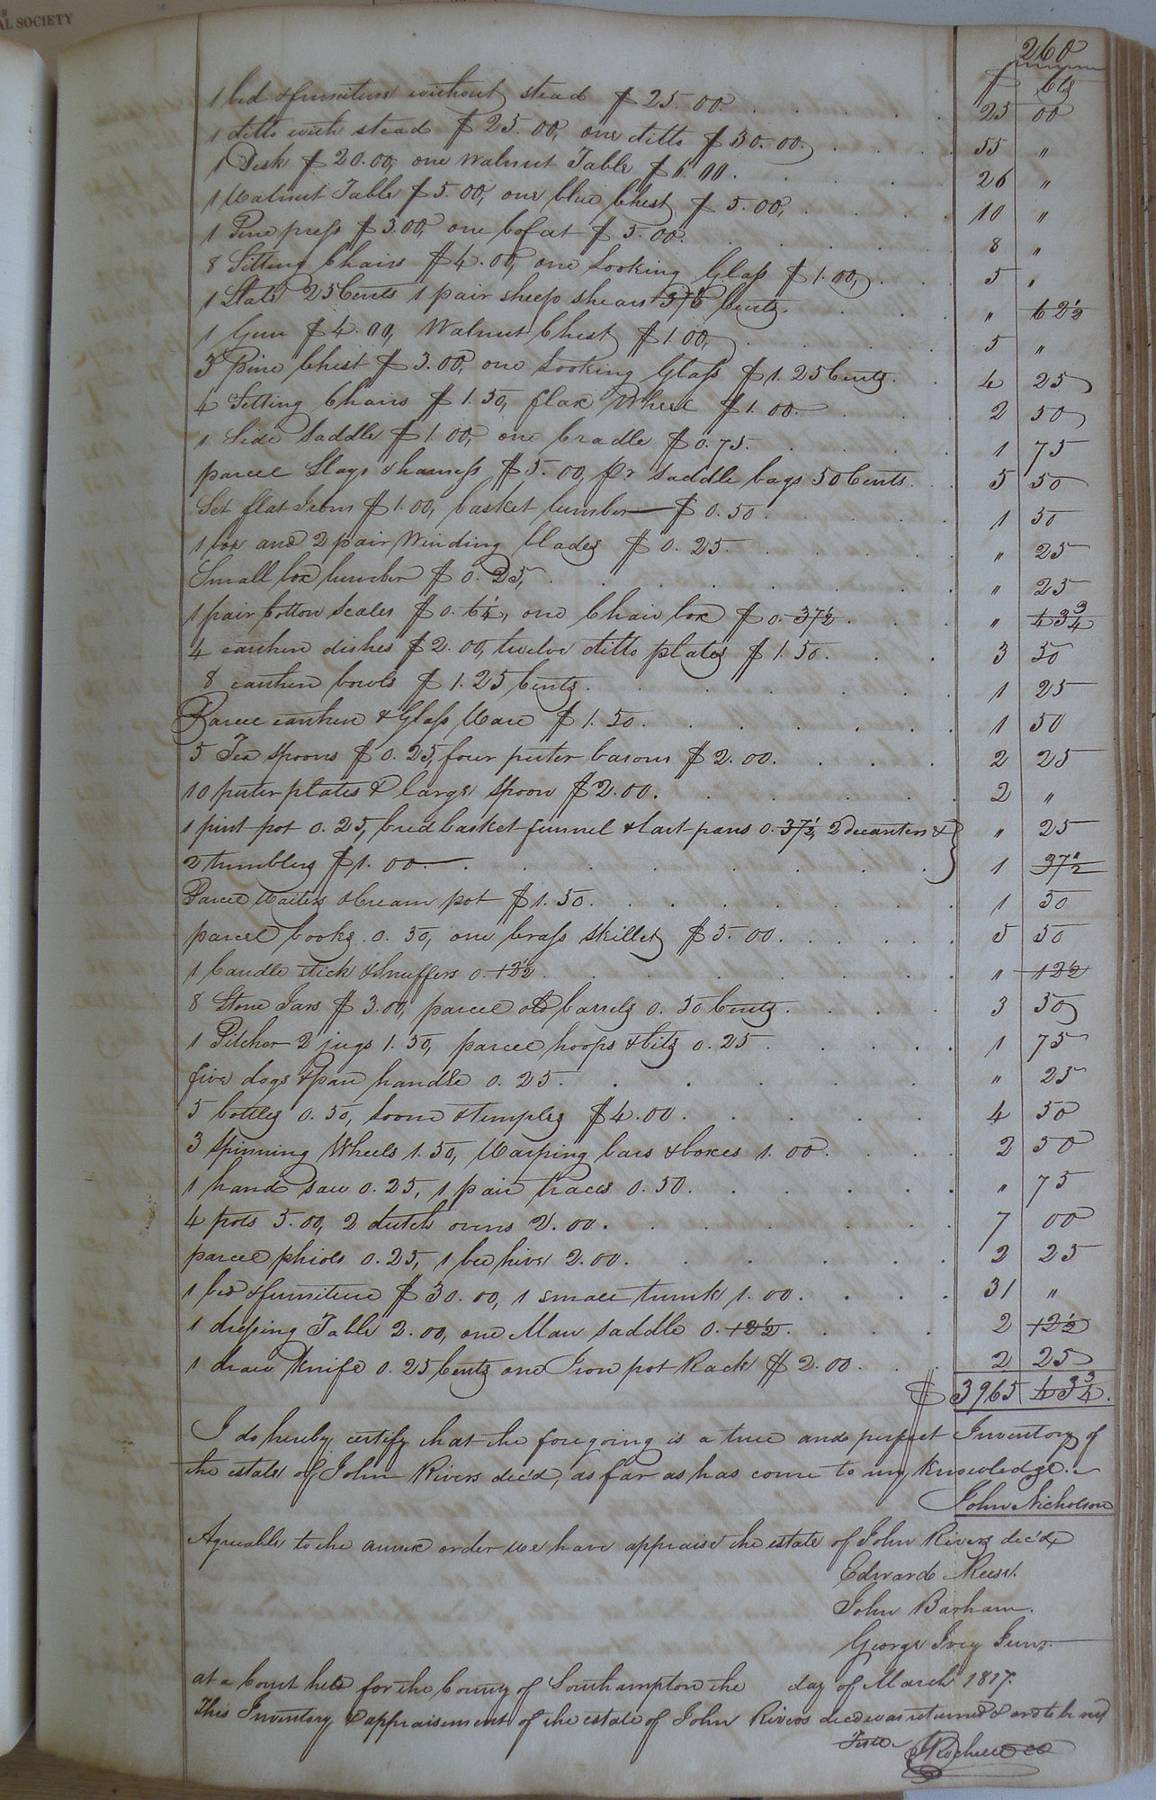 AL SOCIETY
260
$ Cts
1 bed & furniture without stead $25.00. 25 00
1 ditto with stead $25.00, one ditto $30.00. 55 "
1 Desk $20.00, one Walnut Table $6.00. 26 "
1 Walnut Table $5.00, one blue Chest $5.00, 10 "
1 Pine press $3.00, one bofat $5.00. 8 "
8 Sitting Chairs $4.00, one Looking Glass $1.00, 5 "
1 Slate 25 Cents 1 pair sheep shears 37½ Cents. " 62½
1 Gun $4.00, Walnut Chest $1.00, 5 "
3 Pine Chest $3.00, one Looking Glass $1.25 Cents. 4 25
4 Sitting Chairs $1.50, flax Wheel $1.00. 2 50
1 Side Saddle $1.00, one Cradle $0.75. 1 75
parcel Slays & harness $5.00, pr saddle bags 50 Cents. 5 50
Set flat Irons $1.00, basket lumber $0.50. 1 50
1 box and 2 pair Winding blades $0.25. " 25
Small box lumber $0.25, " 25
1 pair Cotton Scales $0.6¼, one Chair box $0.37½. " 43¾
4 earthen dishes $2.00, twelve ditto plates $1.50. 3 50
8 earthen bowls $1.25 Cents. 1 25
Parcel earthen & Glass Ware $1.50. 1 50
5 Tea Spoons $0.25, four puter basons $2.00. 2 25
10 puter plates & large spoon $2.00. 2 "
1 pint pot 0.25, bred basket funnel & tart pans 0.37½, 2 decanters & " 25
2 tumblers $1.00 1 37½
Parcel Waiters & Cream pot $1.50. 1 50
parcel books 0.50, one brass Skillet $5.00. 5 50
1 Candle stick & Snuffers 0.12½ " 12½
8 Stone Jars $3.00, parcel old barrels 0.50 Cents. 3 50
1 Pitcher 2 jugs 1.50, parcel hoops & bits 0.25. 1 75
fire dogs & pan handle 0.25. " 25
5 bottles 0.50, Loom & temples $4.00. 4 50
3 Spinning Wheels 1.50, Warping bars & boxes 1.00. 2 50
1 hand saw 0.25, 1 pair traces 0.50. " 75
4 pots 5.00, 2 dutch ovens 2.00. 7 00
parcel phials 0.25, 1 bee hive 2.00. 2 25
1 bed & furniture $30.00, 1 small trunk 1.00. 31 "
1 dressing Table 2.00, one Man saddle 0.12½. 2 12½
1 draw Knife 0.25 Cents one Iron pot Rack $2.00. 2 25
$3965 43¾.
I do hereby certify that the foregoing is a true and perfect Inventory of
the estate of John Rivers dec'd, as far as has come to my knowledge.
John Nicholson
Agreeable to the annex order we have appraised the estate of John Rivers dec'd
Edward Reese.
John Barham.
George Ivey Junr.
at a Court held for the County of Southampton the day of March 1817.
This Inventory & appraisement of the estate of John Rivers decd was returned & ord to be red
Teste. J Rochelle CC